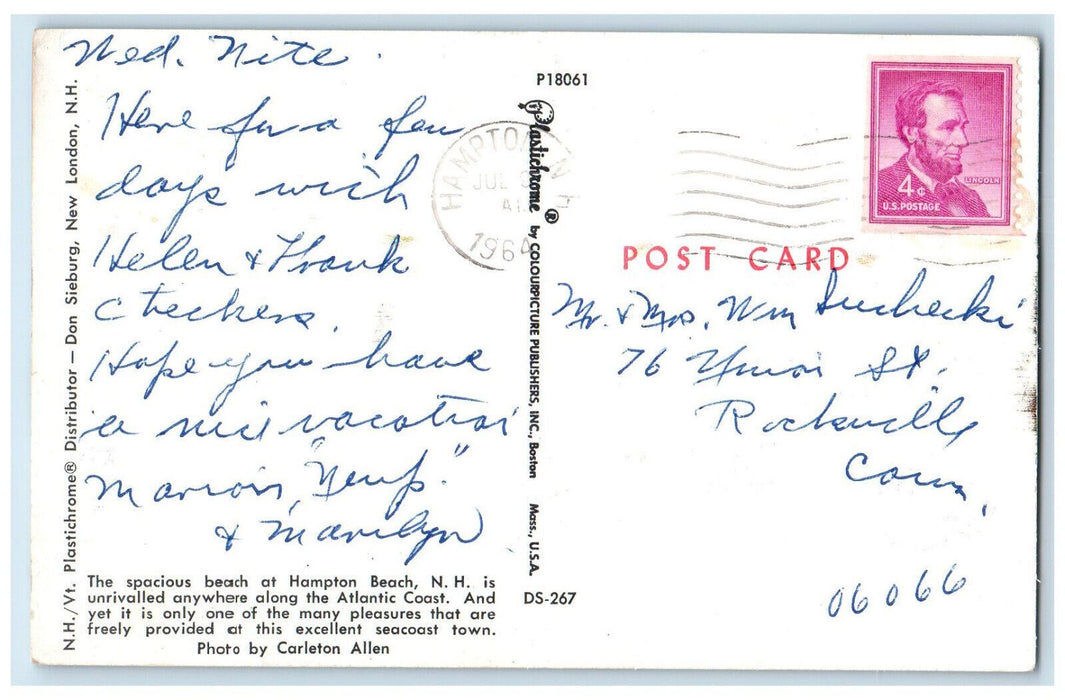 Wed. Nite.
Here for a few
days with
Helen & Frank
Checkers.
Hope you have
a nice vacation
Marion, "Neup."
& Marilyn
The spacious beach at Hampton Beach, N. H. is
unrivalled anywhere along the Atlantic Coast. And
yet it is only one of the many pleasures that are
freely provided at this excellent seacoast town.
Photo by Carleton Allen
N.H./Vt. Plastichrome® Distributor — Don Sieburg, New London, N.H.
P18061
Plastichrome® by COLOURPICTURE PUBLISHERS, INC., Boston Mass., U.S.A.
DS-267
HAMPTON N H
JUL
1964
4¢
LINCOLN
U.S. POSTAGE
POST CARD
Mr. & Mrs. Wm Suchecki
76 Union St.
Rockville
Conn.
06066